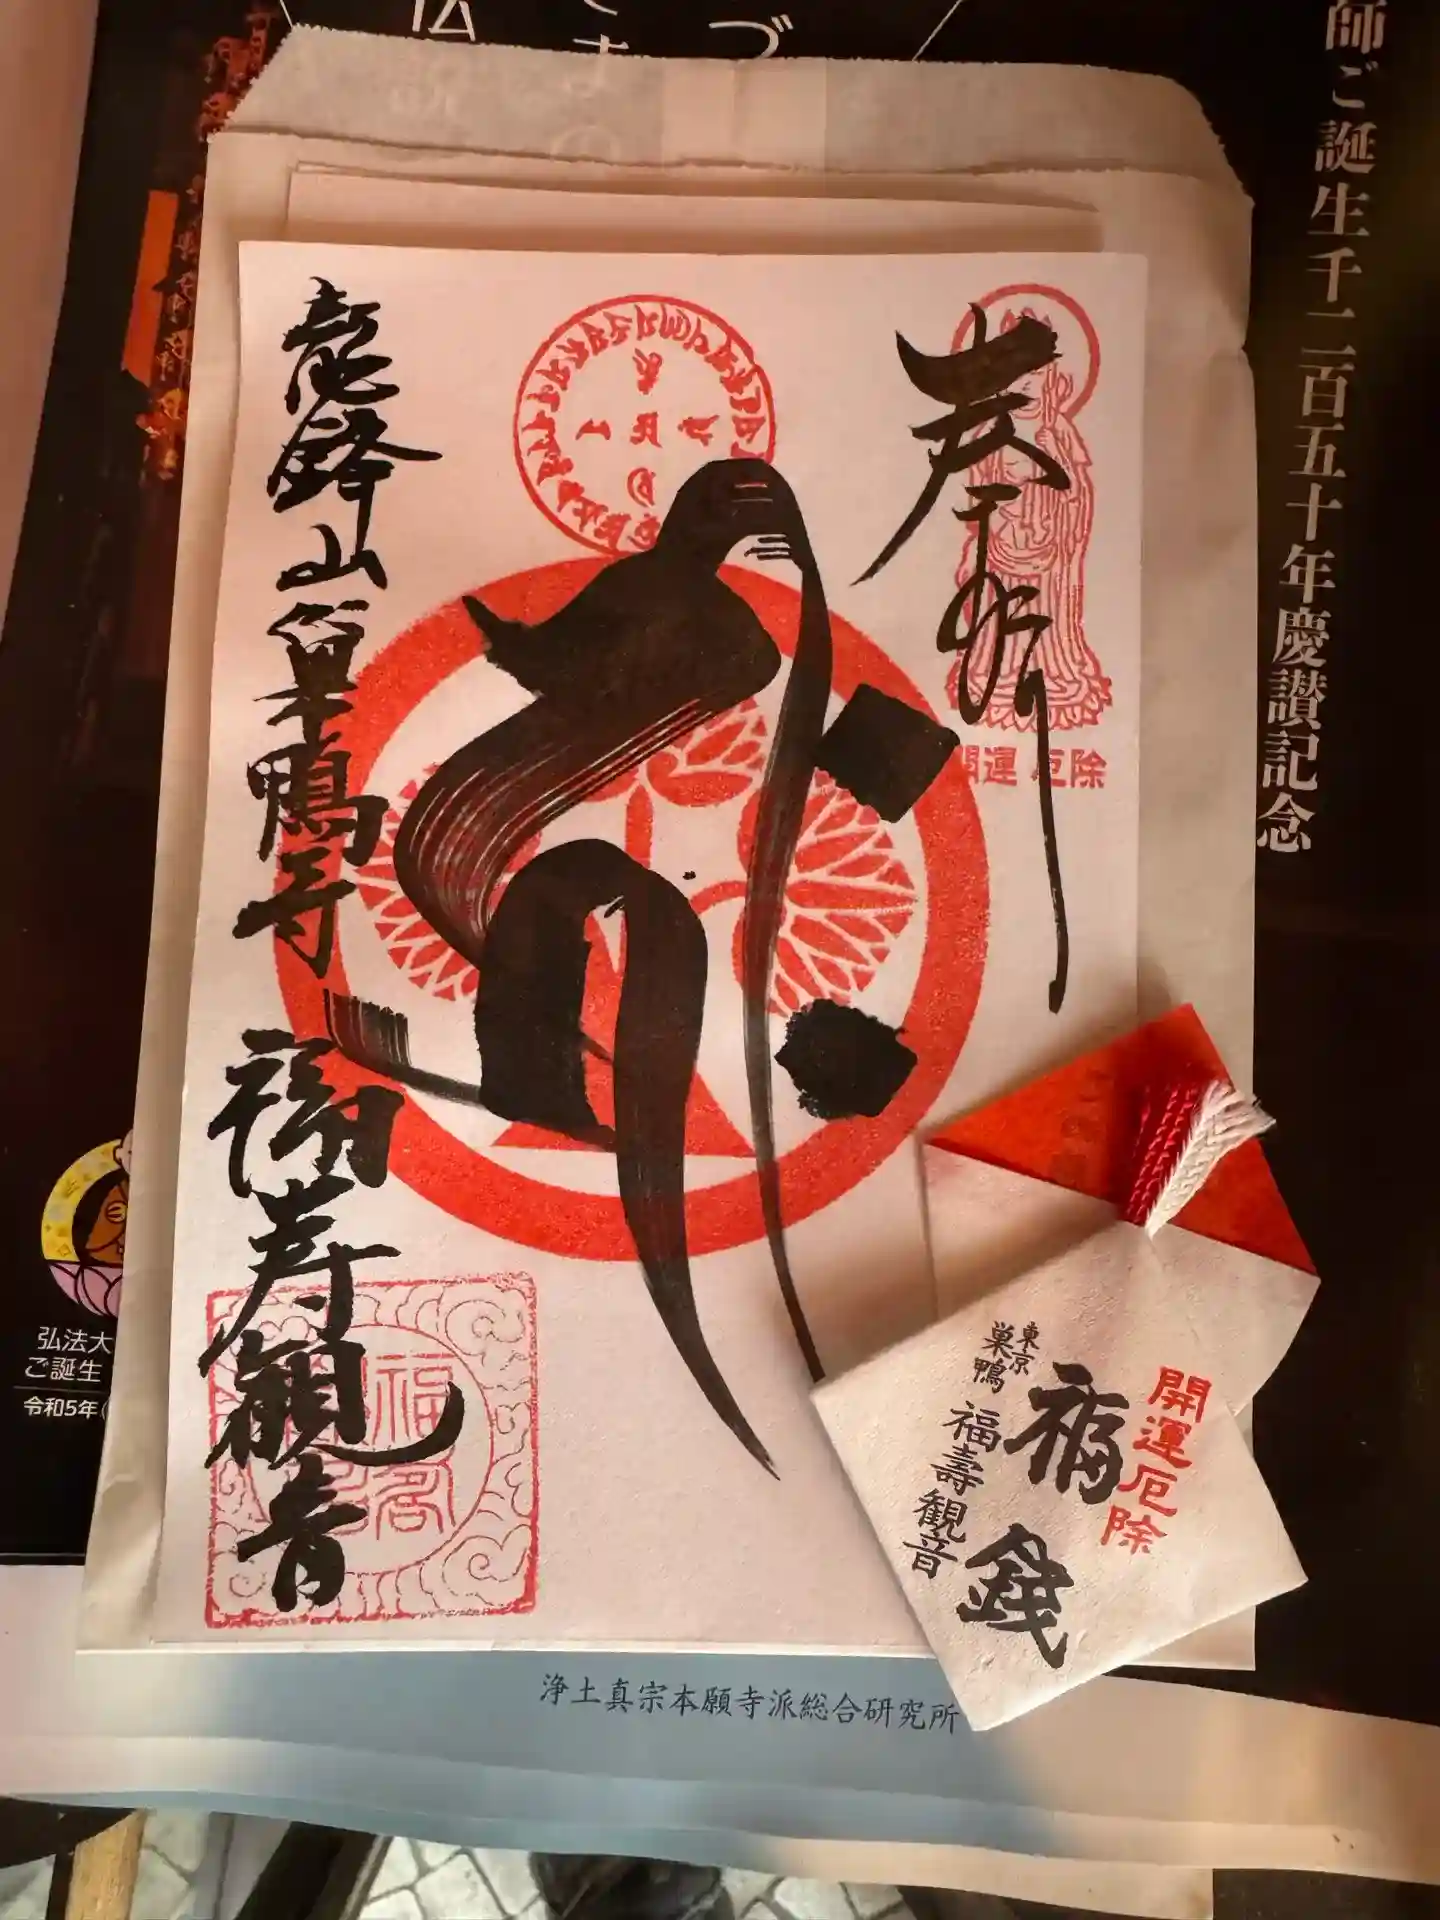 師ご誕生千二百五十年慶讃記念
奉拝
開運 厄除
龍鋒山巣鴨寺
福寿観音
開運厄除
福銭
東京
巣鴨
福壽観音
弘法大
ご誕生
令和5年(
浄土真宗本願寺派総合研究所